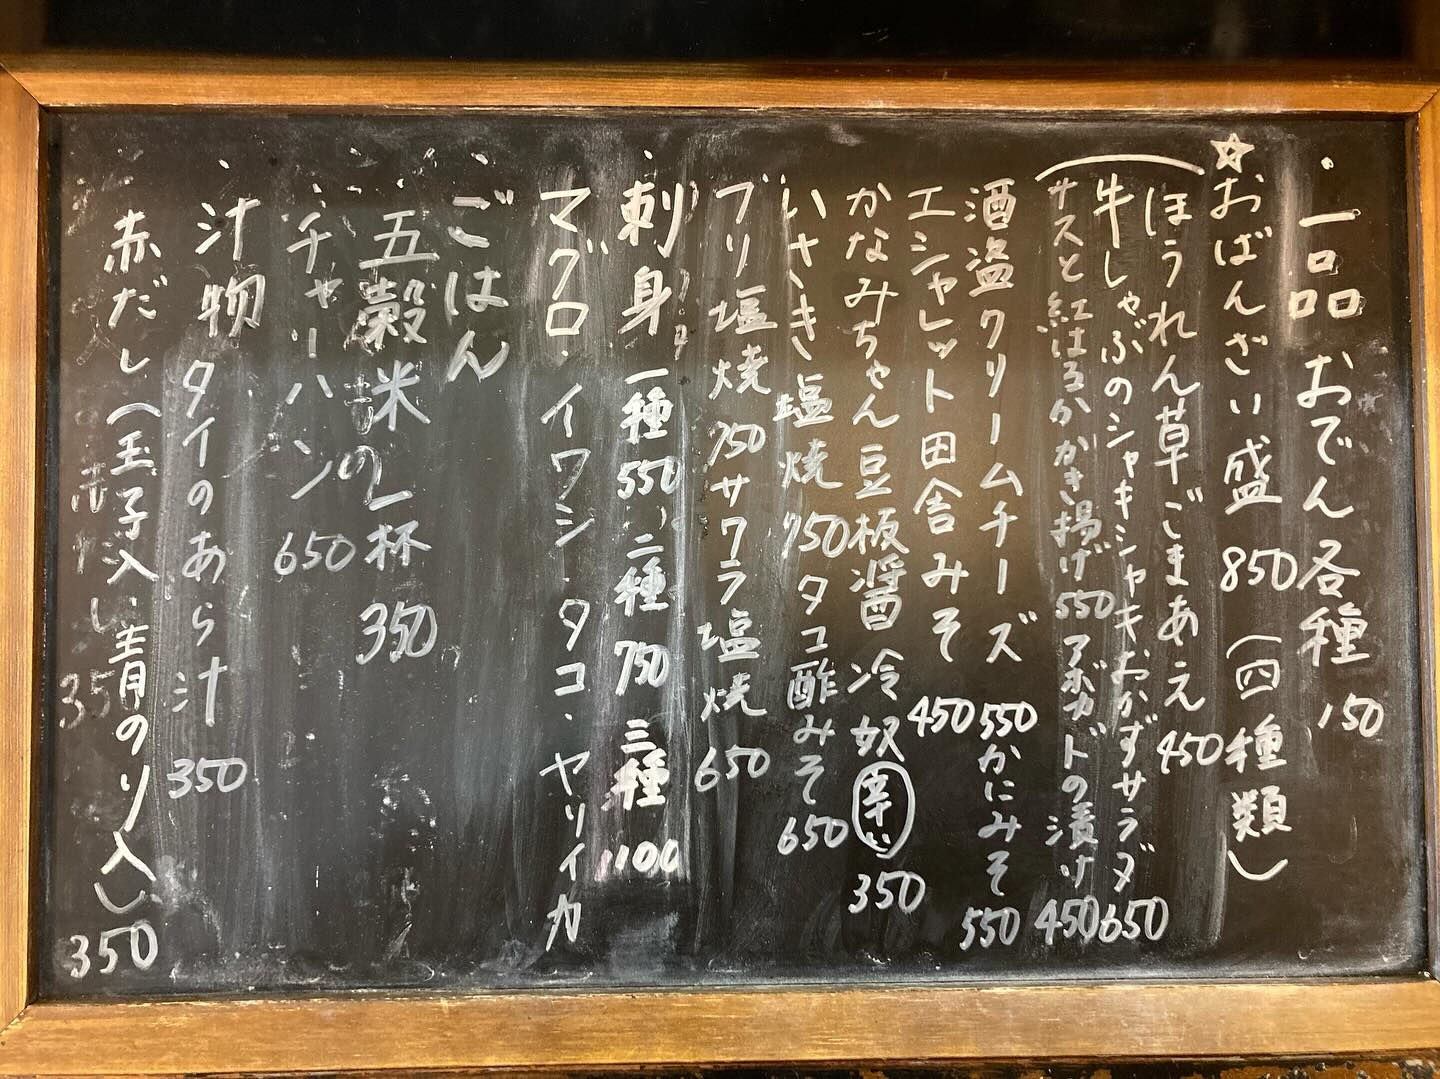 一品 おでん 各種 150
☆おばんざい盛 850 (四種類)
ほうれん草ごまあえ 450
牛しゃぶのシャキシャキおかずサラダ 650
サスと紅はるかかき揚げ 550 アボカドの漬け 450
酒盗クリームチーズ 550 かにみそ 550
エシャレット田舎みそ 450
かなみちゃん豆板醤冷奴 辛い 350
いさき塩焼 750 タコ酢みそ 650
ブリ塩焼 750 サワラ塩焼 650
刺身 一種 550 二種 750 三種 1100
マグロ・イワシ・タコ・ヤリイカ
ごはん
五穀米の一杯 350
チャーハン 650
汁物 タイのあら汁 350
赤だし(玉子入い青のり入) 350